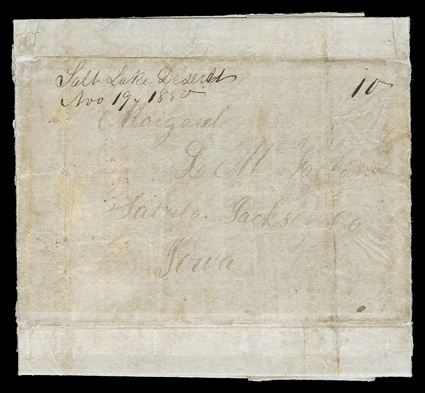 Salt Lake Deseret
Nov 19, 1850
10
Margaret
Sabula Jackson Co
Iowa